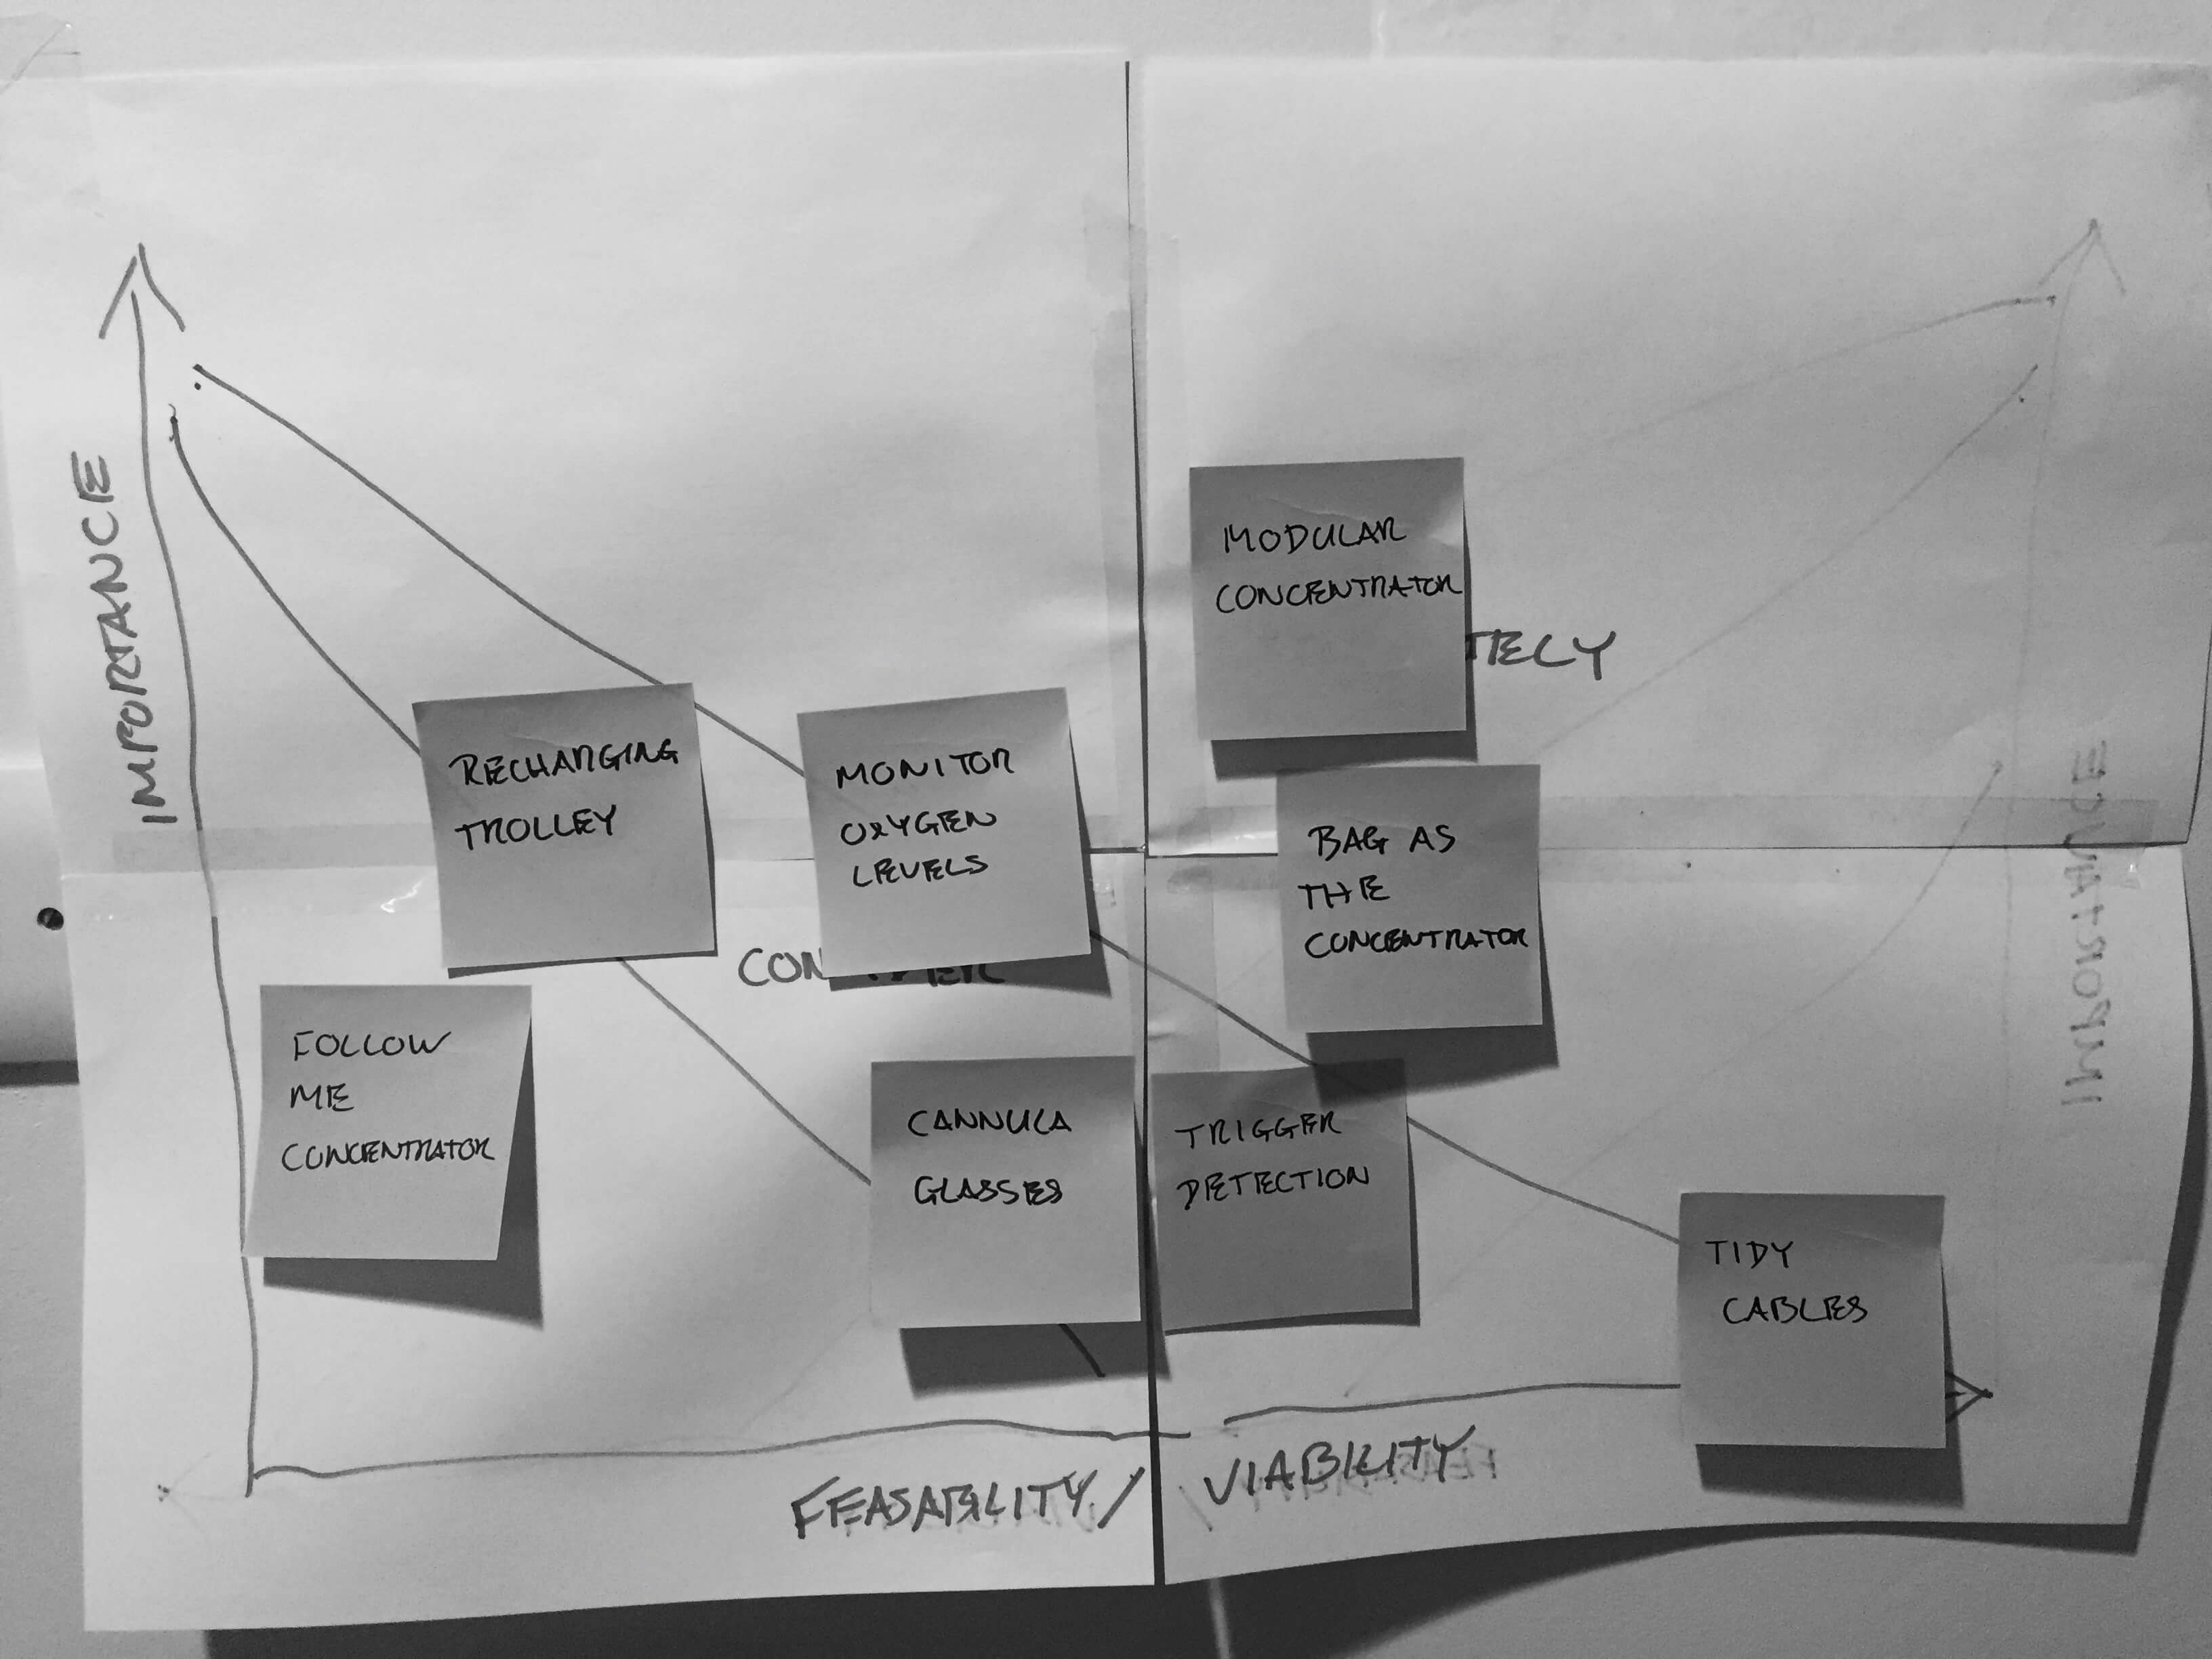 IMPORTANCE
MODULAR
CONCENTRATOR
TELY
RECHARGING
TROLLEY
MONITOR
OXYGEN
LEVELS
BAG AS
THE
CONCENTRATOR
FOLLOW
ME
CONCENTRATOR
CANNULA
GLASSES
TRIGGER
DETECTION
TIDY
CABLES
FEASABILITY / VIABILITY